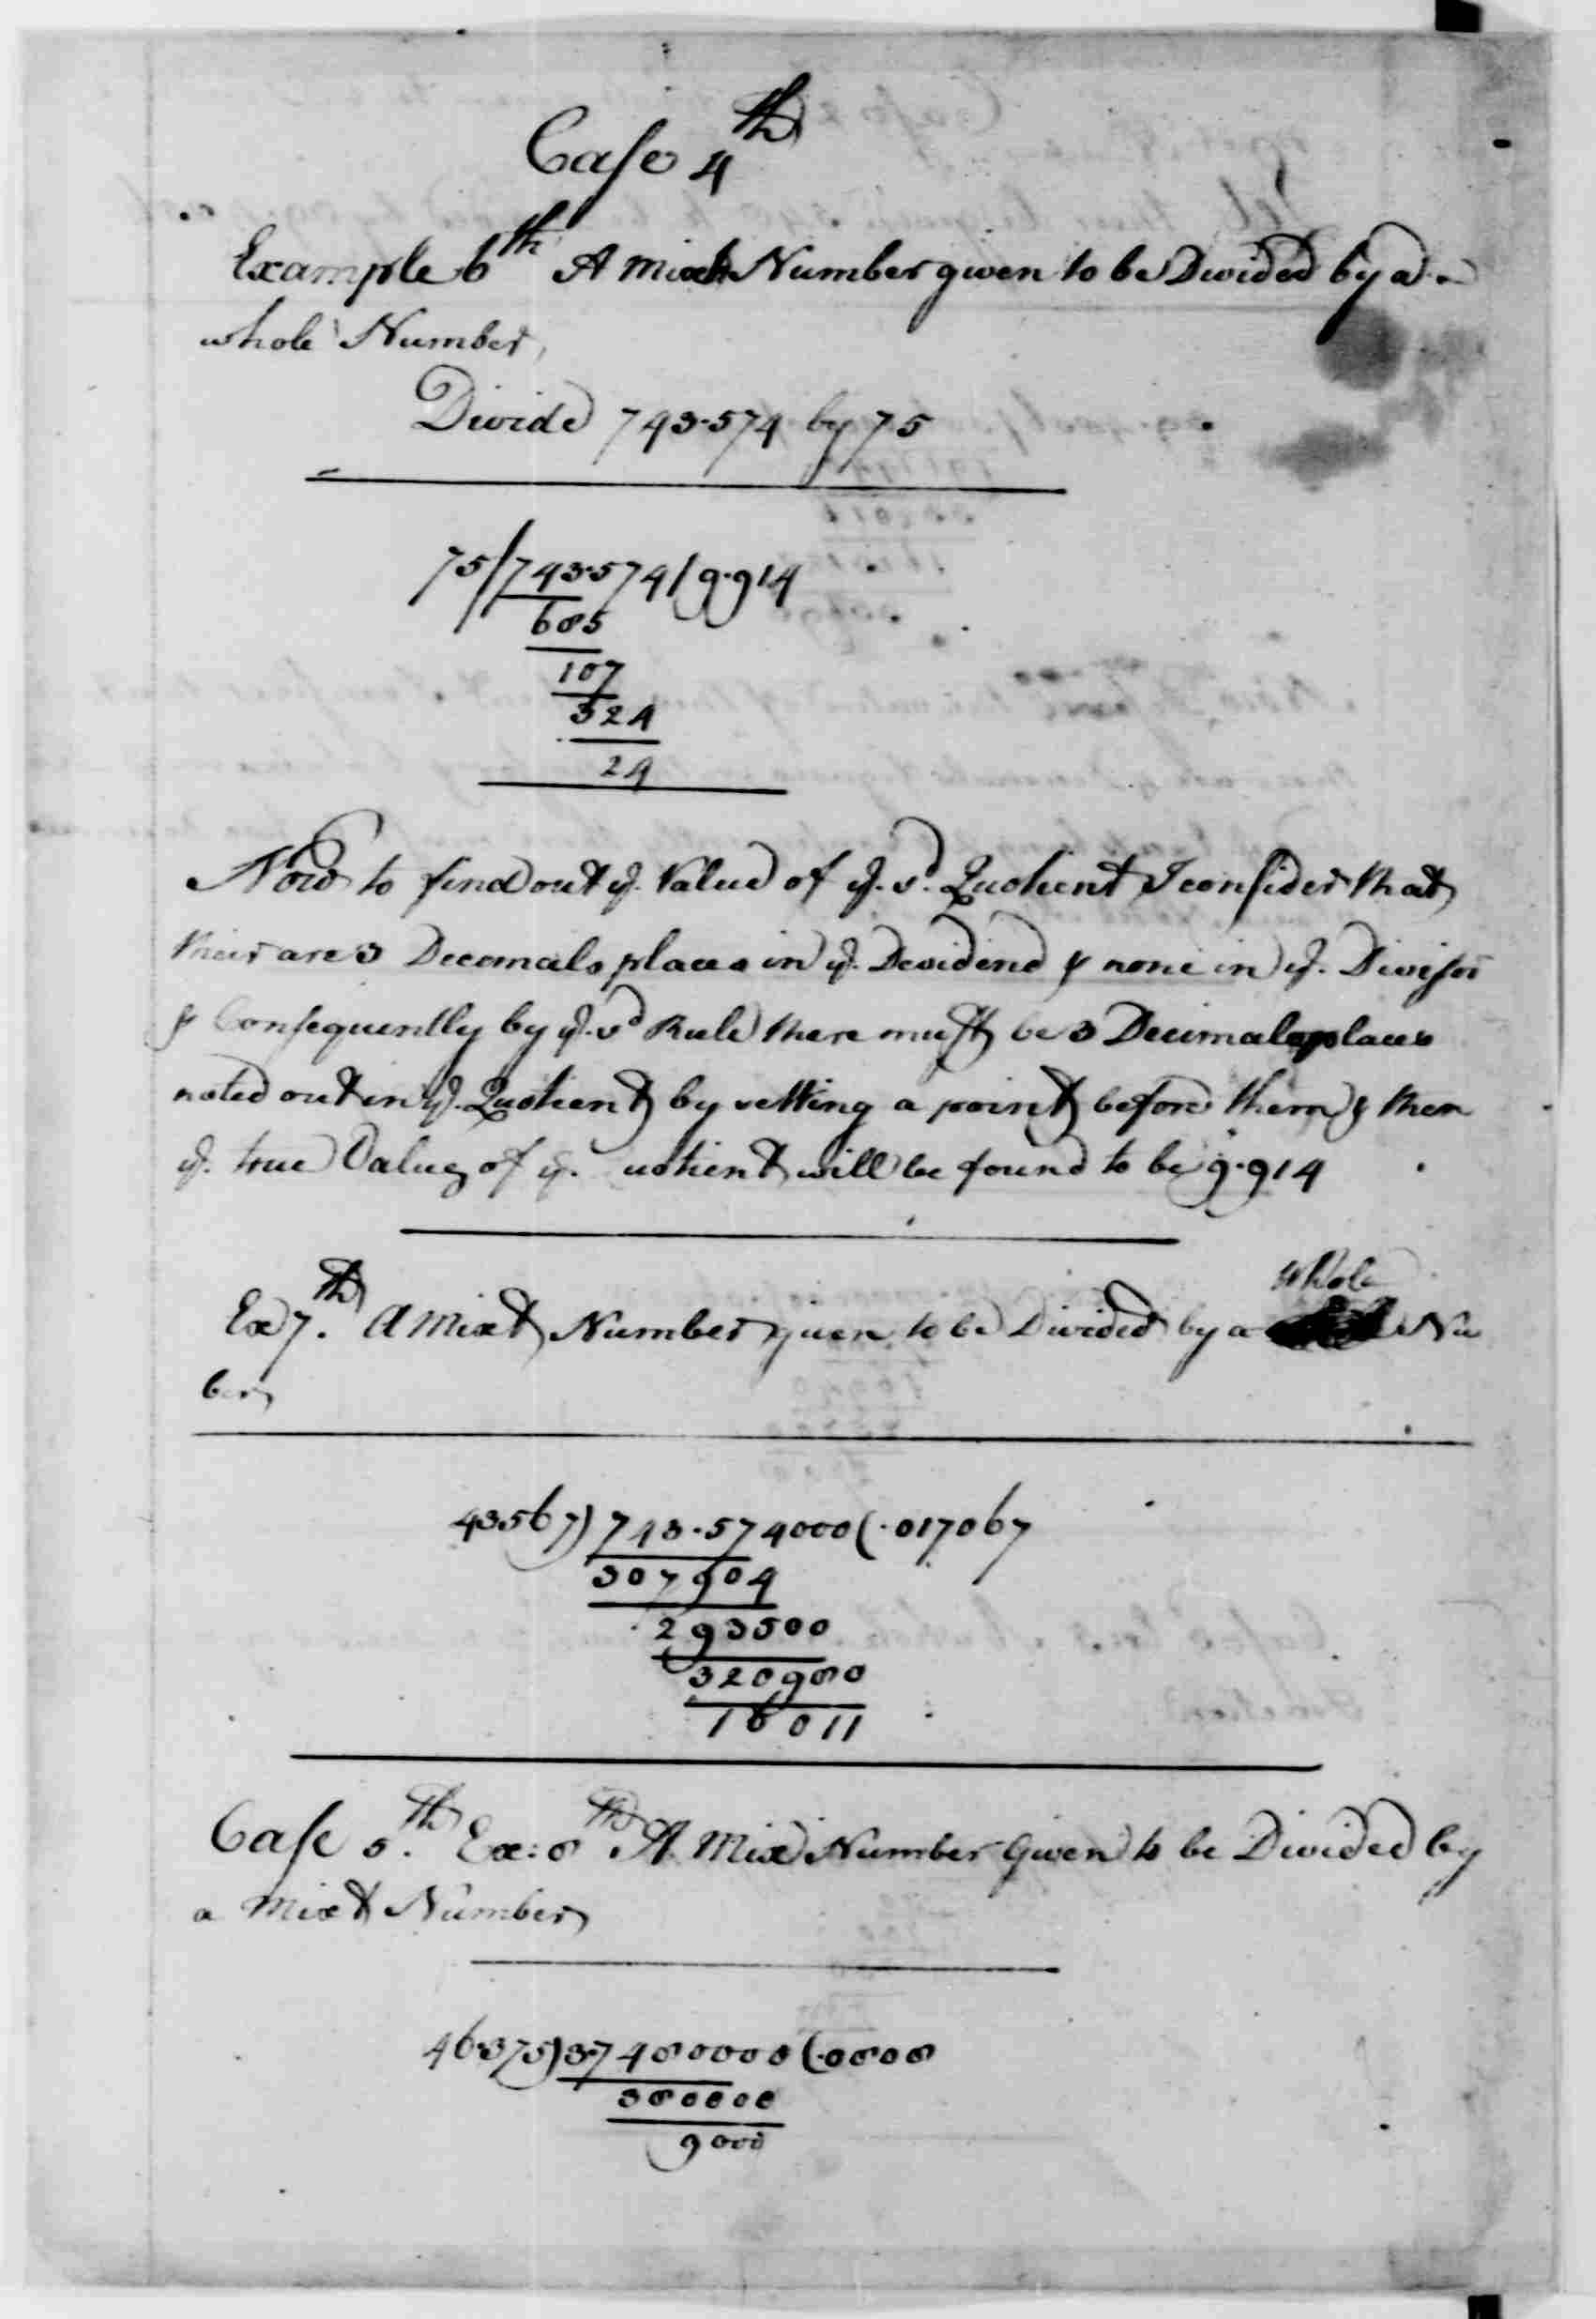 Case 4th
Example 6th A Mixt Number given to be Divided by a
whole Number
Divide 743.574 by 75
75/743.574/9.914
685
107
324
24
Now to find out ye. Value of ye. sd. Quotient I consider that
their are 3 Decemals places in ye. Devidend & none in ye. Divisor
& Consequently by ye. sd Rule there must be 3 Decimals places
noted out in ye. Quotient by setting a point before them & then
ye. true Value of ye. uotient will be found to be 9.914
Whole
Ex 7th. A Mixt Number given to be Divided by a Nu
ber
43567) 743.574000 (.017067
307904
293500
320980
16011
Case 5th. Ex: 8th A Mixd Number Given to be Divided by
a Mixt Number
46.375)3.7480000(.0808
380000
9000